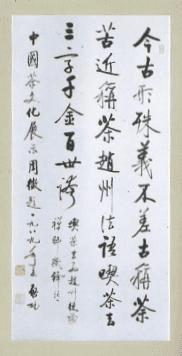 今古形殊義不差古稱荼
苦近稱茶趙州法語喫茶去
三字千金百世誇
喫茶去趙州
禪師
中國茶文化展示周徵題一九八九年夏啟功